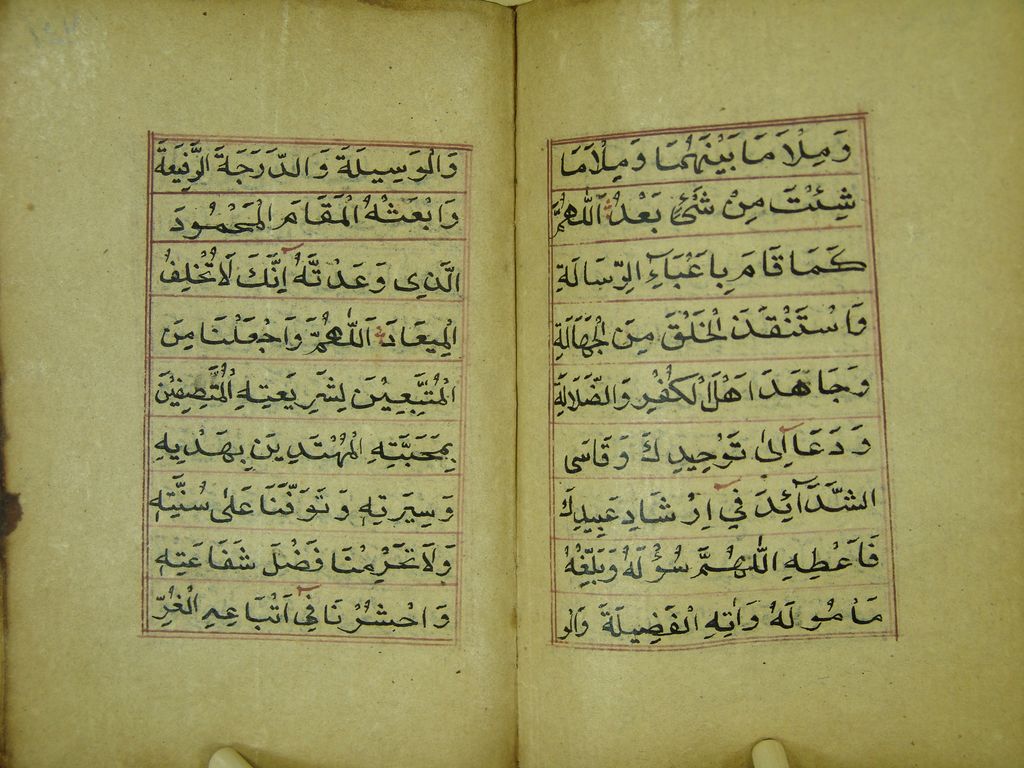 وَمِلْاَ مَا بَيْنَهُمَا وَمِلْاَ مَا
شِئْتَ مِنْ شَيْءٍ بَعْدُ اَللّٰهُمَّ
كَمَا قَامَ بِاَعْبَآءِ الرِّسَالَةِ
وَاسْتَنْقَذَ الْخَلْقَ مِنَ الْجَهَالَةِ
وَجَاهَدَ اَهْلَ الْكُفْرِ وَالضَّلَالَةِ
وَدَعَا اِلٰى تَوْحِيدِكَ وَقَاسَى
الشَّدَآئِدَ فِي اِرْشَادِ عَبِيدِكَ
فَاَعْطِهِ اللّٰهُمَّ سُؤْلَهُ وَبَلِّغْهُ
مَاْمُولَهُ وَاٰتِهِ الْفَضِيلَةَ وَالْو
وَالْوَسِيلَةَ وَالدَّرَجَةَ الرَّفِيعَةَ
وَابْعَثْهُ الْمَقَامَ الْمَحْمُودَ
الَّذِي وَعَدْتَّهُ اِنَّكَ لَا تُخْلِفُ
الْمِيعَادَ اَللّٰهُمَّ وَاجْعَلْنَا مِنَ
الْمُتَّبِعِيْنَ لِشَرِيعَتِهِ الْمُتَّصِفِيْنَ
بِمَحَبَّتِهِ الْمُهْتَدِينَ بِهَدْيِهِ
وَسِيرَتِهِ وَتَوَفَّنَا عَلٰى سُنَّتِهِ
وَلَا تَحْرِمْنَا فَضْلَ شَفَاعَتِهِ
وَاحْشُرْنَا فِي اَتْبَاعِهِ الْغُرِّ